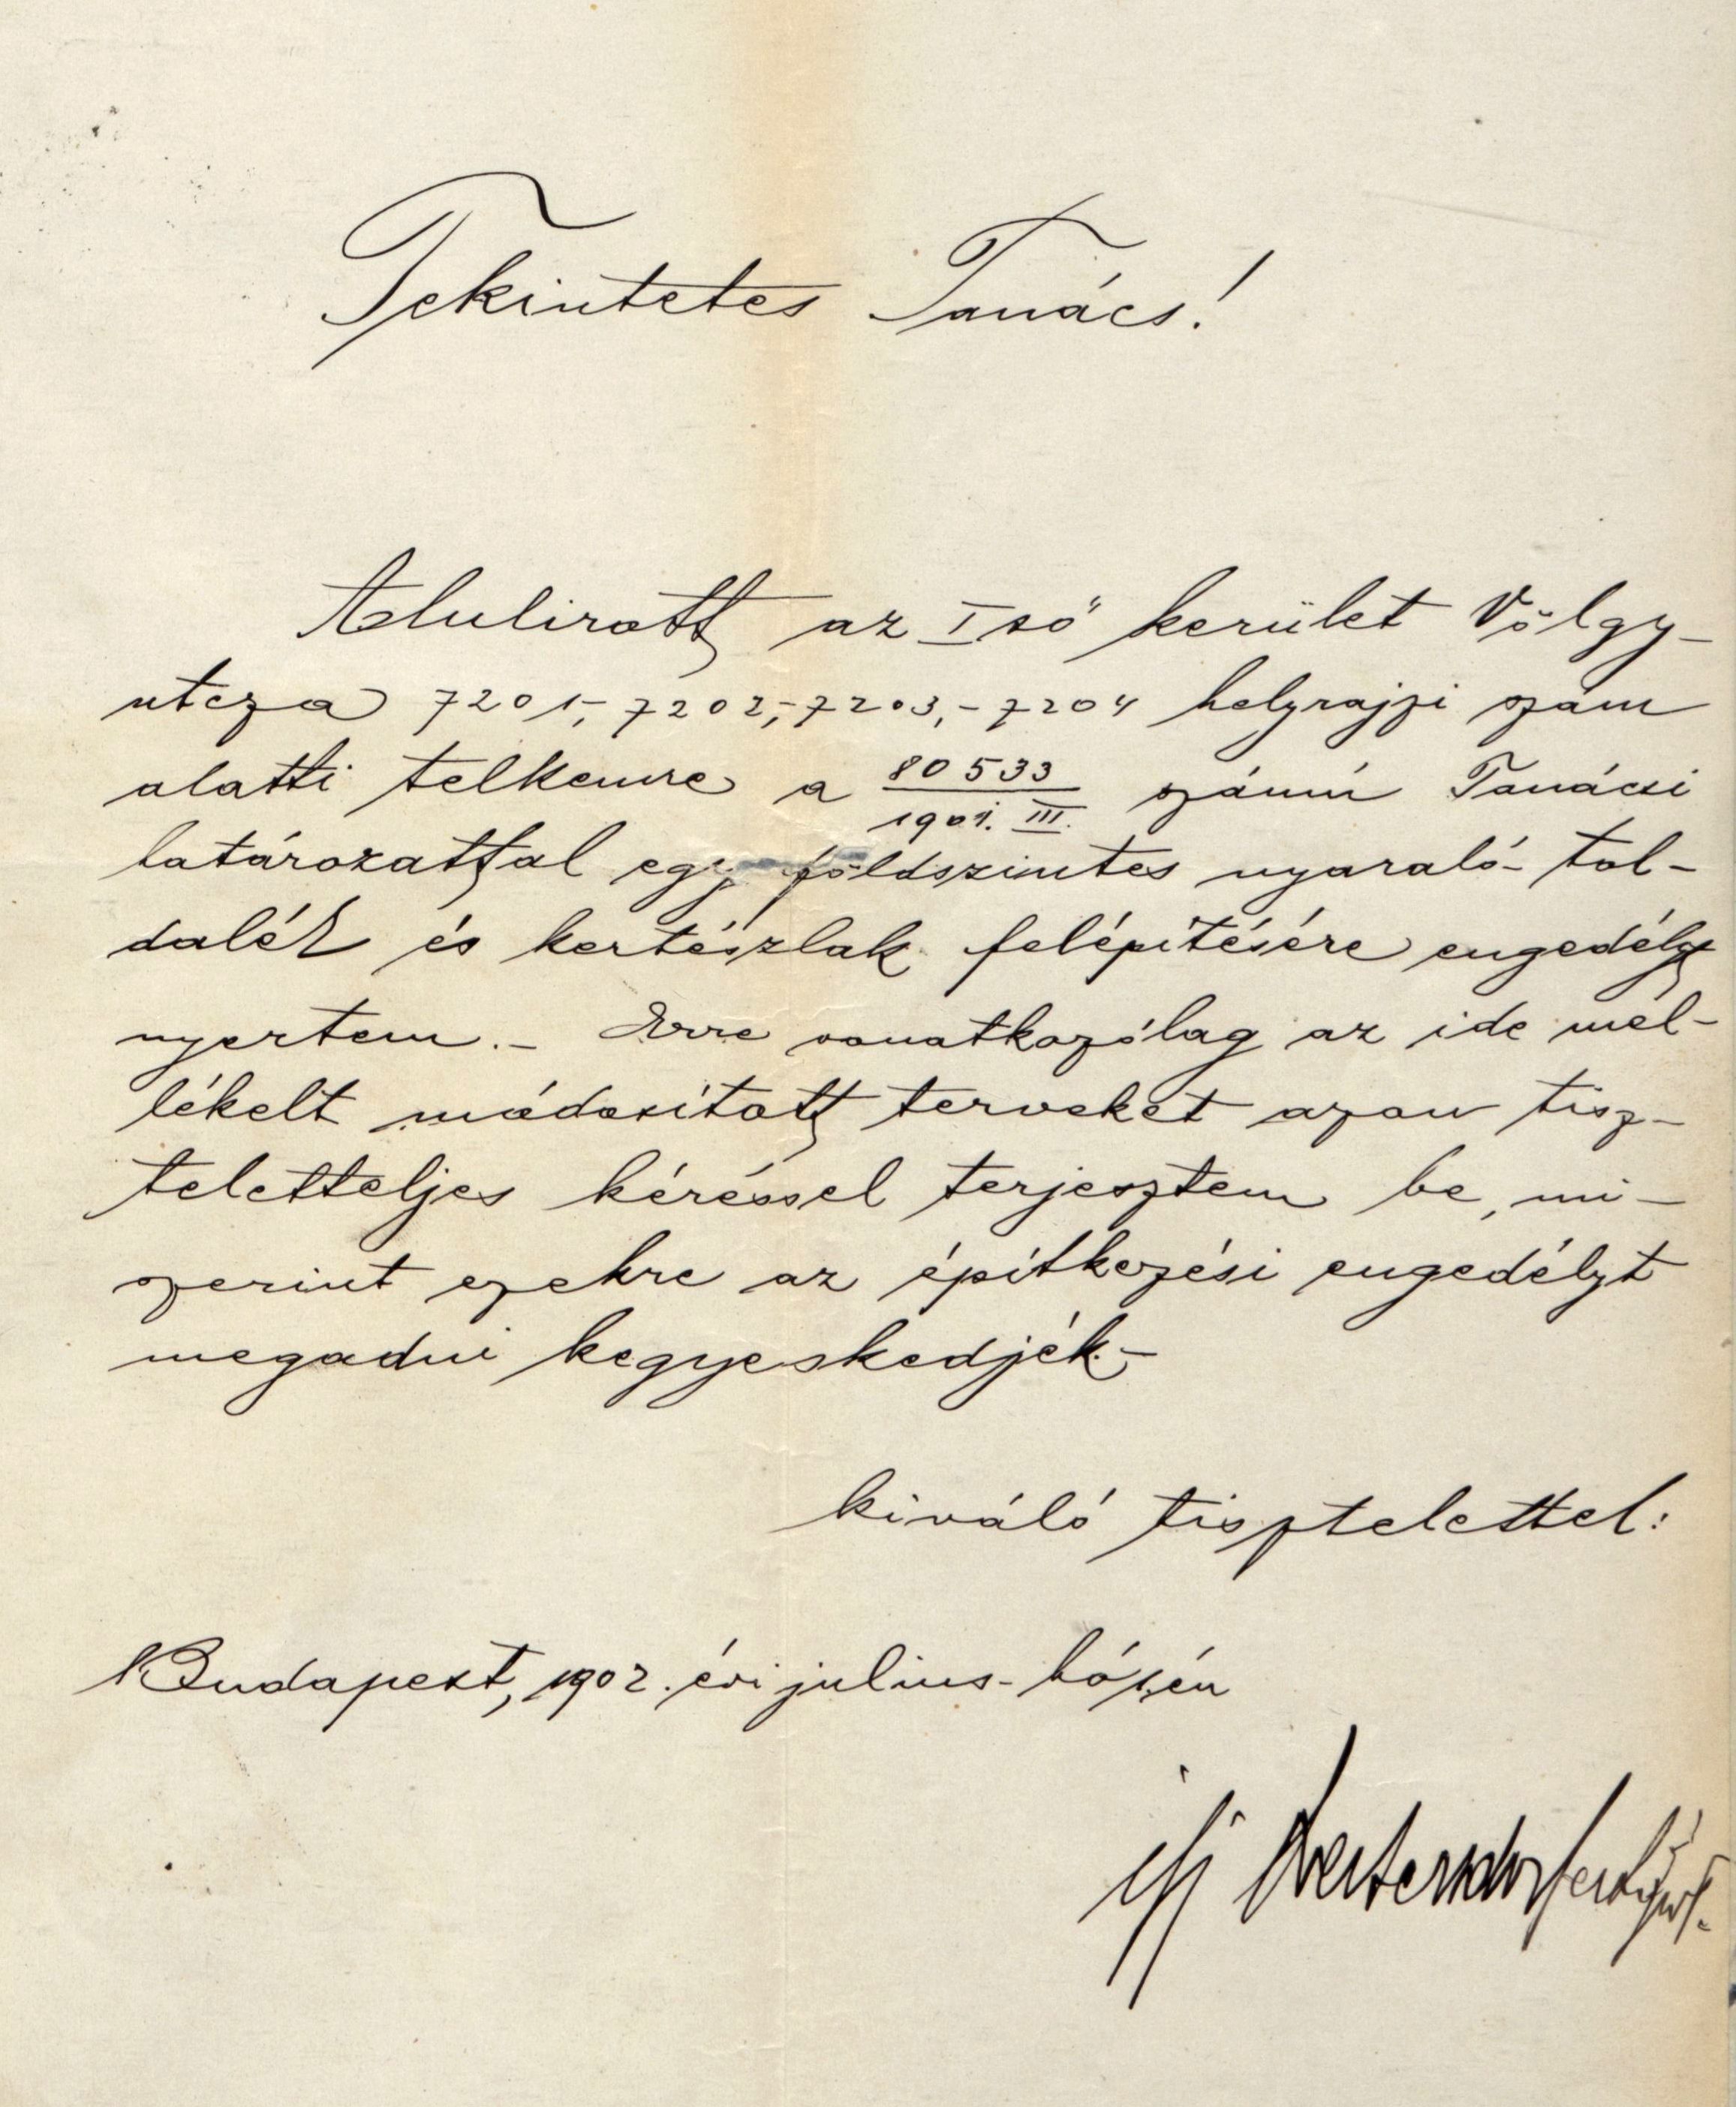 Tekintetes Tanács!
Alulirott az I ső kerület Völgy-
utcza 7201,- 7202,- 7203,- 7204 helyrajzi szám
alatti telkemre a 80533/1901. III. számú Tanácsi
határozattal egy földszintes nyaraló- tol-
dalék és kertészlak felépitésére engedélyt
nyertem.- Erre vonatkozólag az ide mel-
lékelt módositott terveket azon tisz-
teletteljes kéréssel terjesztem be, mi-
szerint ezekre az épitkezési engedélyt
megadni kegyeskedjék.-
kiváló tisztelettel:
Budapest, 1902. évi julius- hó 1,én
ifj